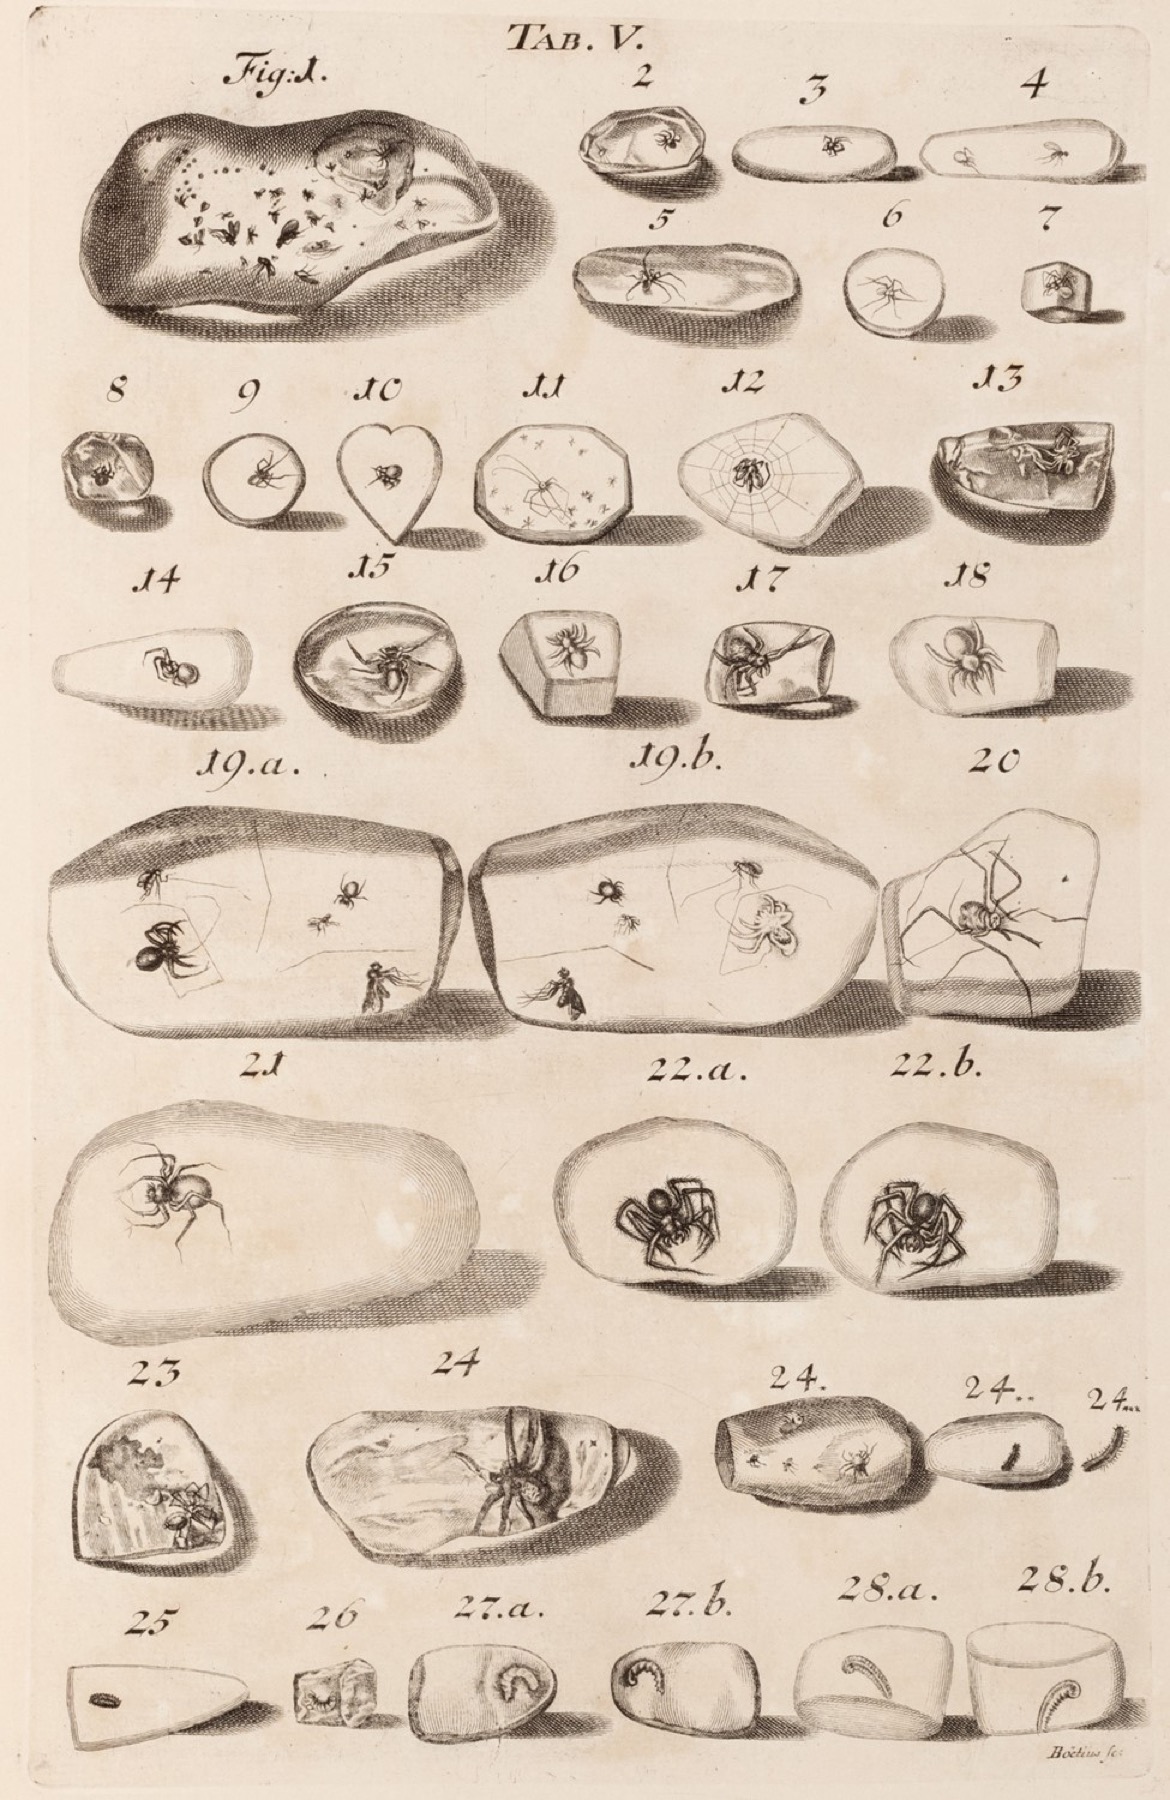 TAB. V.
Fig:1.
2
3
4
5
6
7
8
9
10
11
12
13
14
15
16
17
18
19.a.
19.b.
20
21
22.a.
22.b.
23
24
24.
24..
24...
25
26
27.a.
27.b.
28.a.
28.b.
Boëtius sc: